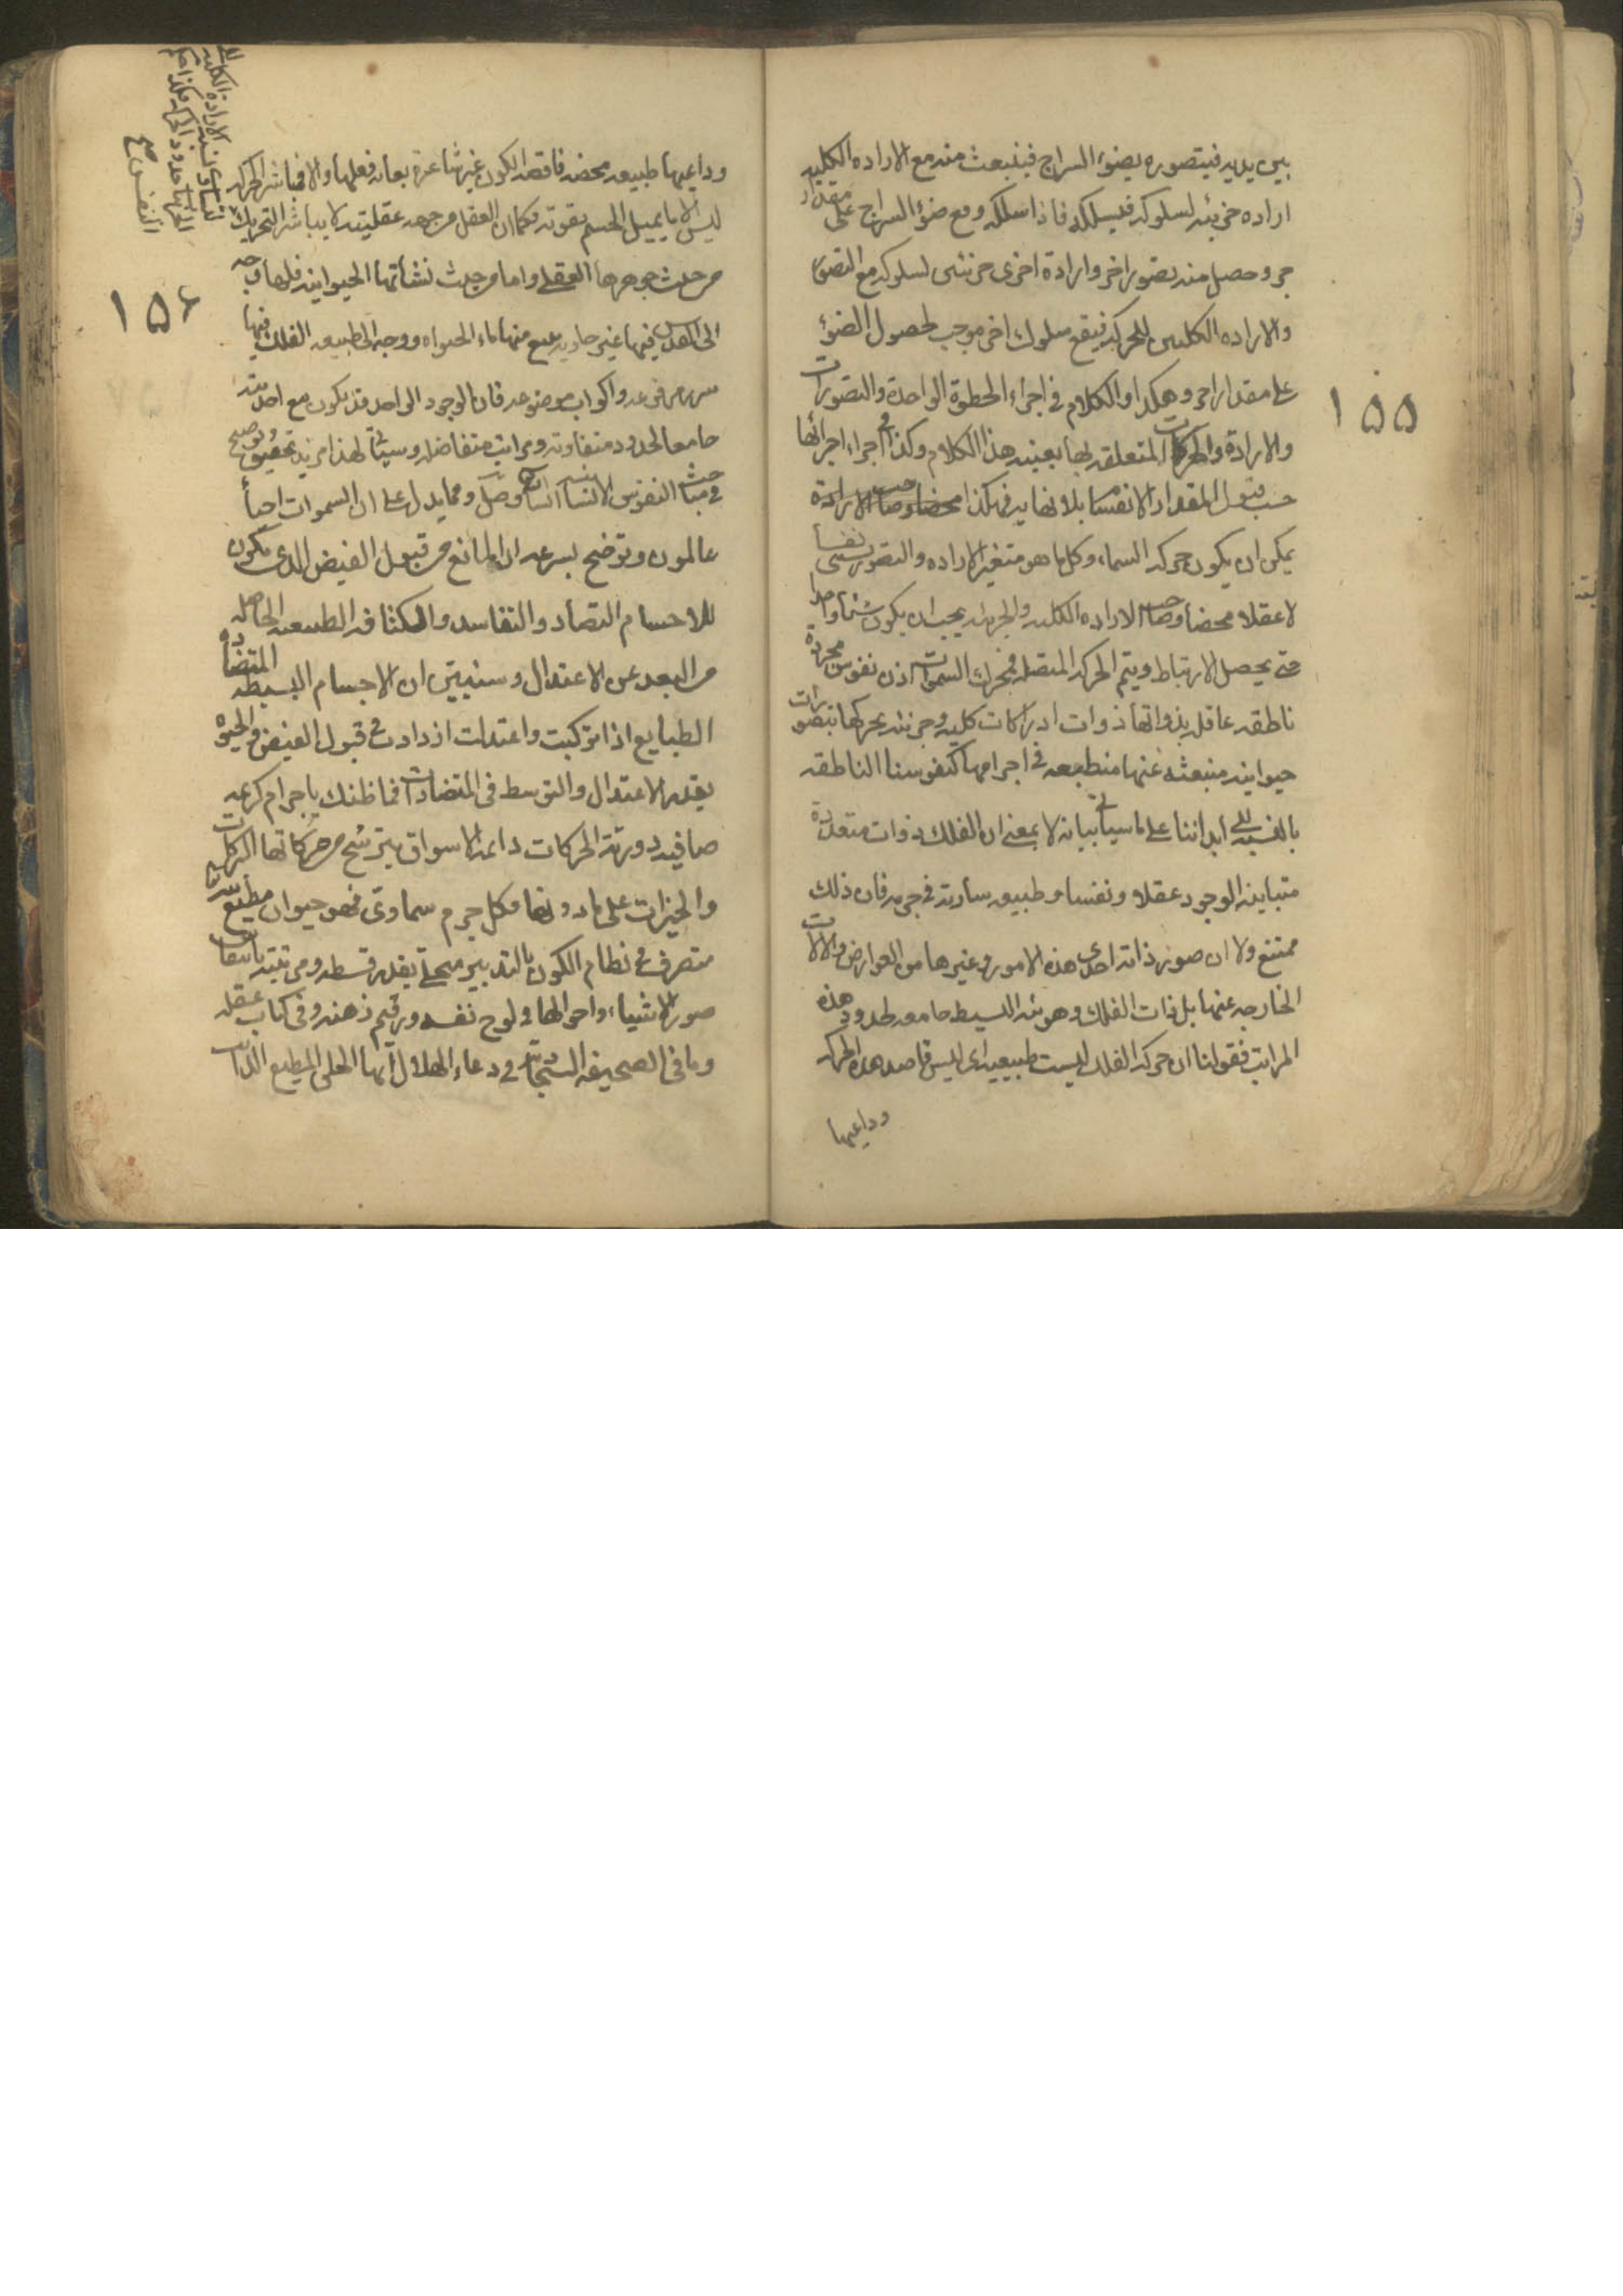 بين يديه فيتصوره بضوء السراج فينبعث منه مع الاراده الكليه
اراده جزئيه لسلوكه فيسلكه فاذا سلكه وقع ضوء السراج على مقدار
آخر وحصل منه تصور اخر وارادة اخرى جزئيتين لسلوكه مع التصور
والاراده الكليين للحركه فيقع سلوك اخر موجب لحصول الضوء
على مقدار اخر وهكذا والكلام في اجزاء الخطوة الواحدة والتصورات
والارادة والحركات المتعلقه بها بعينه هذا الكلام وكذا في اجزاء اجزائها
حسب قبول المقدار الانقسام بلا نهايه فهكذا
يمكن ان يكون حركه السماء وكل ما هو متغير الاراده والتصور يسمى نفسا
لا عقلا محضا وصاحب الاراده الكليه والجزئيه يجب ان يكون شيئا واحدا
حتى يحصل الارتباط ويتم الحركه المتصله فمحرك السموات اذن نفوس مجردة
ناطقه عاقله بذواتها ذوات ادراكات كليه وجزئيه يحركها بتصورات
حيوانيه منبعثه عنها منطبعه في اجرامها كنفوسنا الناطقه
بالنسبه الى ابداننا على ما سيأتي بيانه لا بمعنى ان الفلك ذوات متعددة
متباينه الوجود عقلا ونفسا وطبيعه ساريه في جرمه فان ذلك
ممتنع ولا ان صوره ذاته احدى هذه الامور وغيرها من العوارض والالات
الخارجه عنها بل ذات الفلك وهويته البسيطه جامعه لحدود هذه
المراتب فقولنا ان حركه الفلك ليست طبيعيه اى ليس قاصد هذه الحركه
وداعيها
١٥٥
وداعيها طبيعه محضه ناقصه الكون غير شاعرة بغايه فعلها والا فمباشر الحركه
ليس الا ما يميل الجسم بقوته فكما ان العقل من جهه عقليته لا يباشر التحريك
من حيث جوهرها العقلى واما من حيث نشأتها الحيوانيه فلها وجه
الى القدس فيها عين جاريه ينبع منها ماء الحيواه ووجه الى طبيعه الفلك فيها
سرر مرفوعه واكواب موضوعه فان الوجود الواحد قد يكون مع احديته
جامعا لحدود متفاوته ومراتب متفاضله وسيأتى لهذا مزيد تحقيق وتوضيح
في مباحث النفوس الانسانيه وصل ومما يدل على ان السموات احياء
عالمون وتوضح بسرعه ان المانع من قبول الفيض الذى يكون
للاجسام التضاد والتفاسد والكثافه الطبيعه الحاصله
من البعد عن الاعتدال وسنبين ان الاجسام البسيطه المتضاده
الطبايع اذا تركبت واعتدلت ازدادت في قبول الفيض والحيوه
بقدر الاعتدال والتوسط فى المتضادات فما ظنك باجرام كريمه
صافيه دوريه الحركات دائمه الاشواق يترشح من حركاتها البركات
والخيرات على ما دونها وكل جرم سماوى فهو حيوان مطيع
متصرف في نظام الكون بالتدبير متجلى بقدر قسطه ومرتبته بانتقاش
صور الاشياء واحوالها فى لوح نفسه ورقيم ذهنه وفى كتاب عقله
وما فى الصحيفه السجاديه فى دعاء الهلال ايها الخلق المطيع الدائب
١٥٦